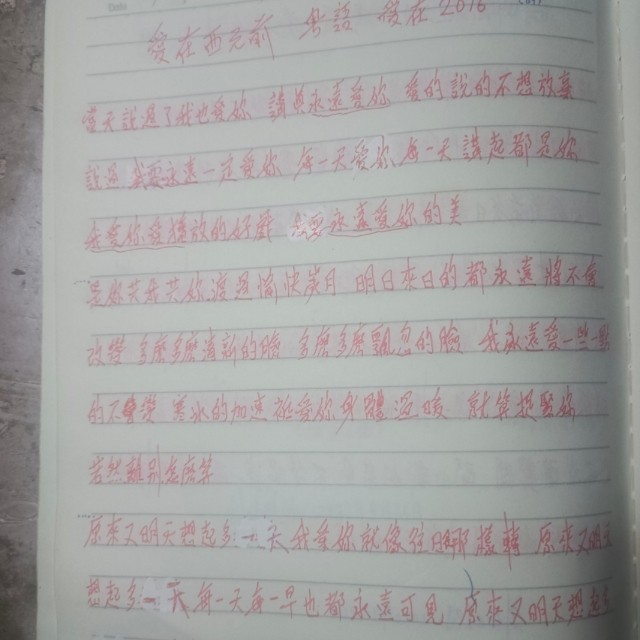 愛在西元前 粵語 愛在2016
當天說是了我也愛你 請思永遠愛你 愛的說的不想放棄
就是 永遠一定愛你 每一天愛你 每一天講起都是你
永愛你愛 放的好 永遠愛你的美
是你共 共你渡過愉快歲月 明日來日的都永遠將不會
改變 多麼多麼清新的臉 多麼多麼飄忽的臉 我永遠愛一些
的 寒冰的加速 愛你身體溫暖 就算
若然離別怎麼算
原來又明天想起多一天 我愛你就像 那樣轉 原來又明天
想起多一天 每一天每一早也都永遠可見 原來又明天想起